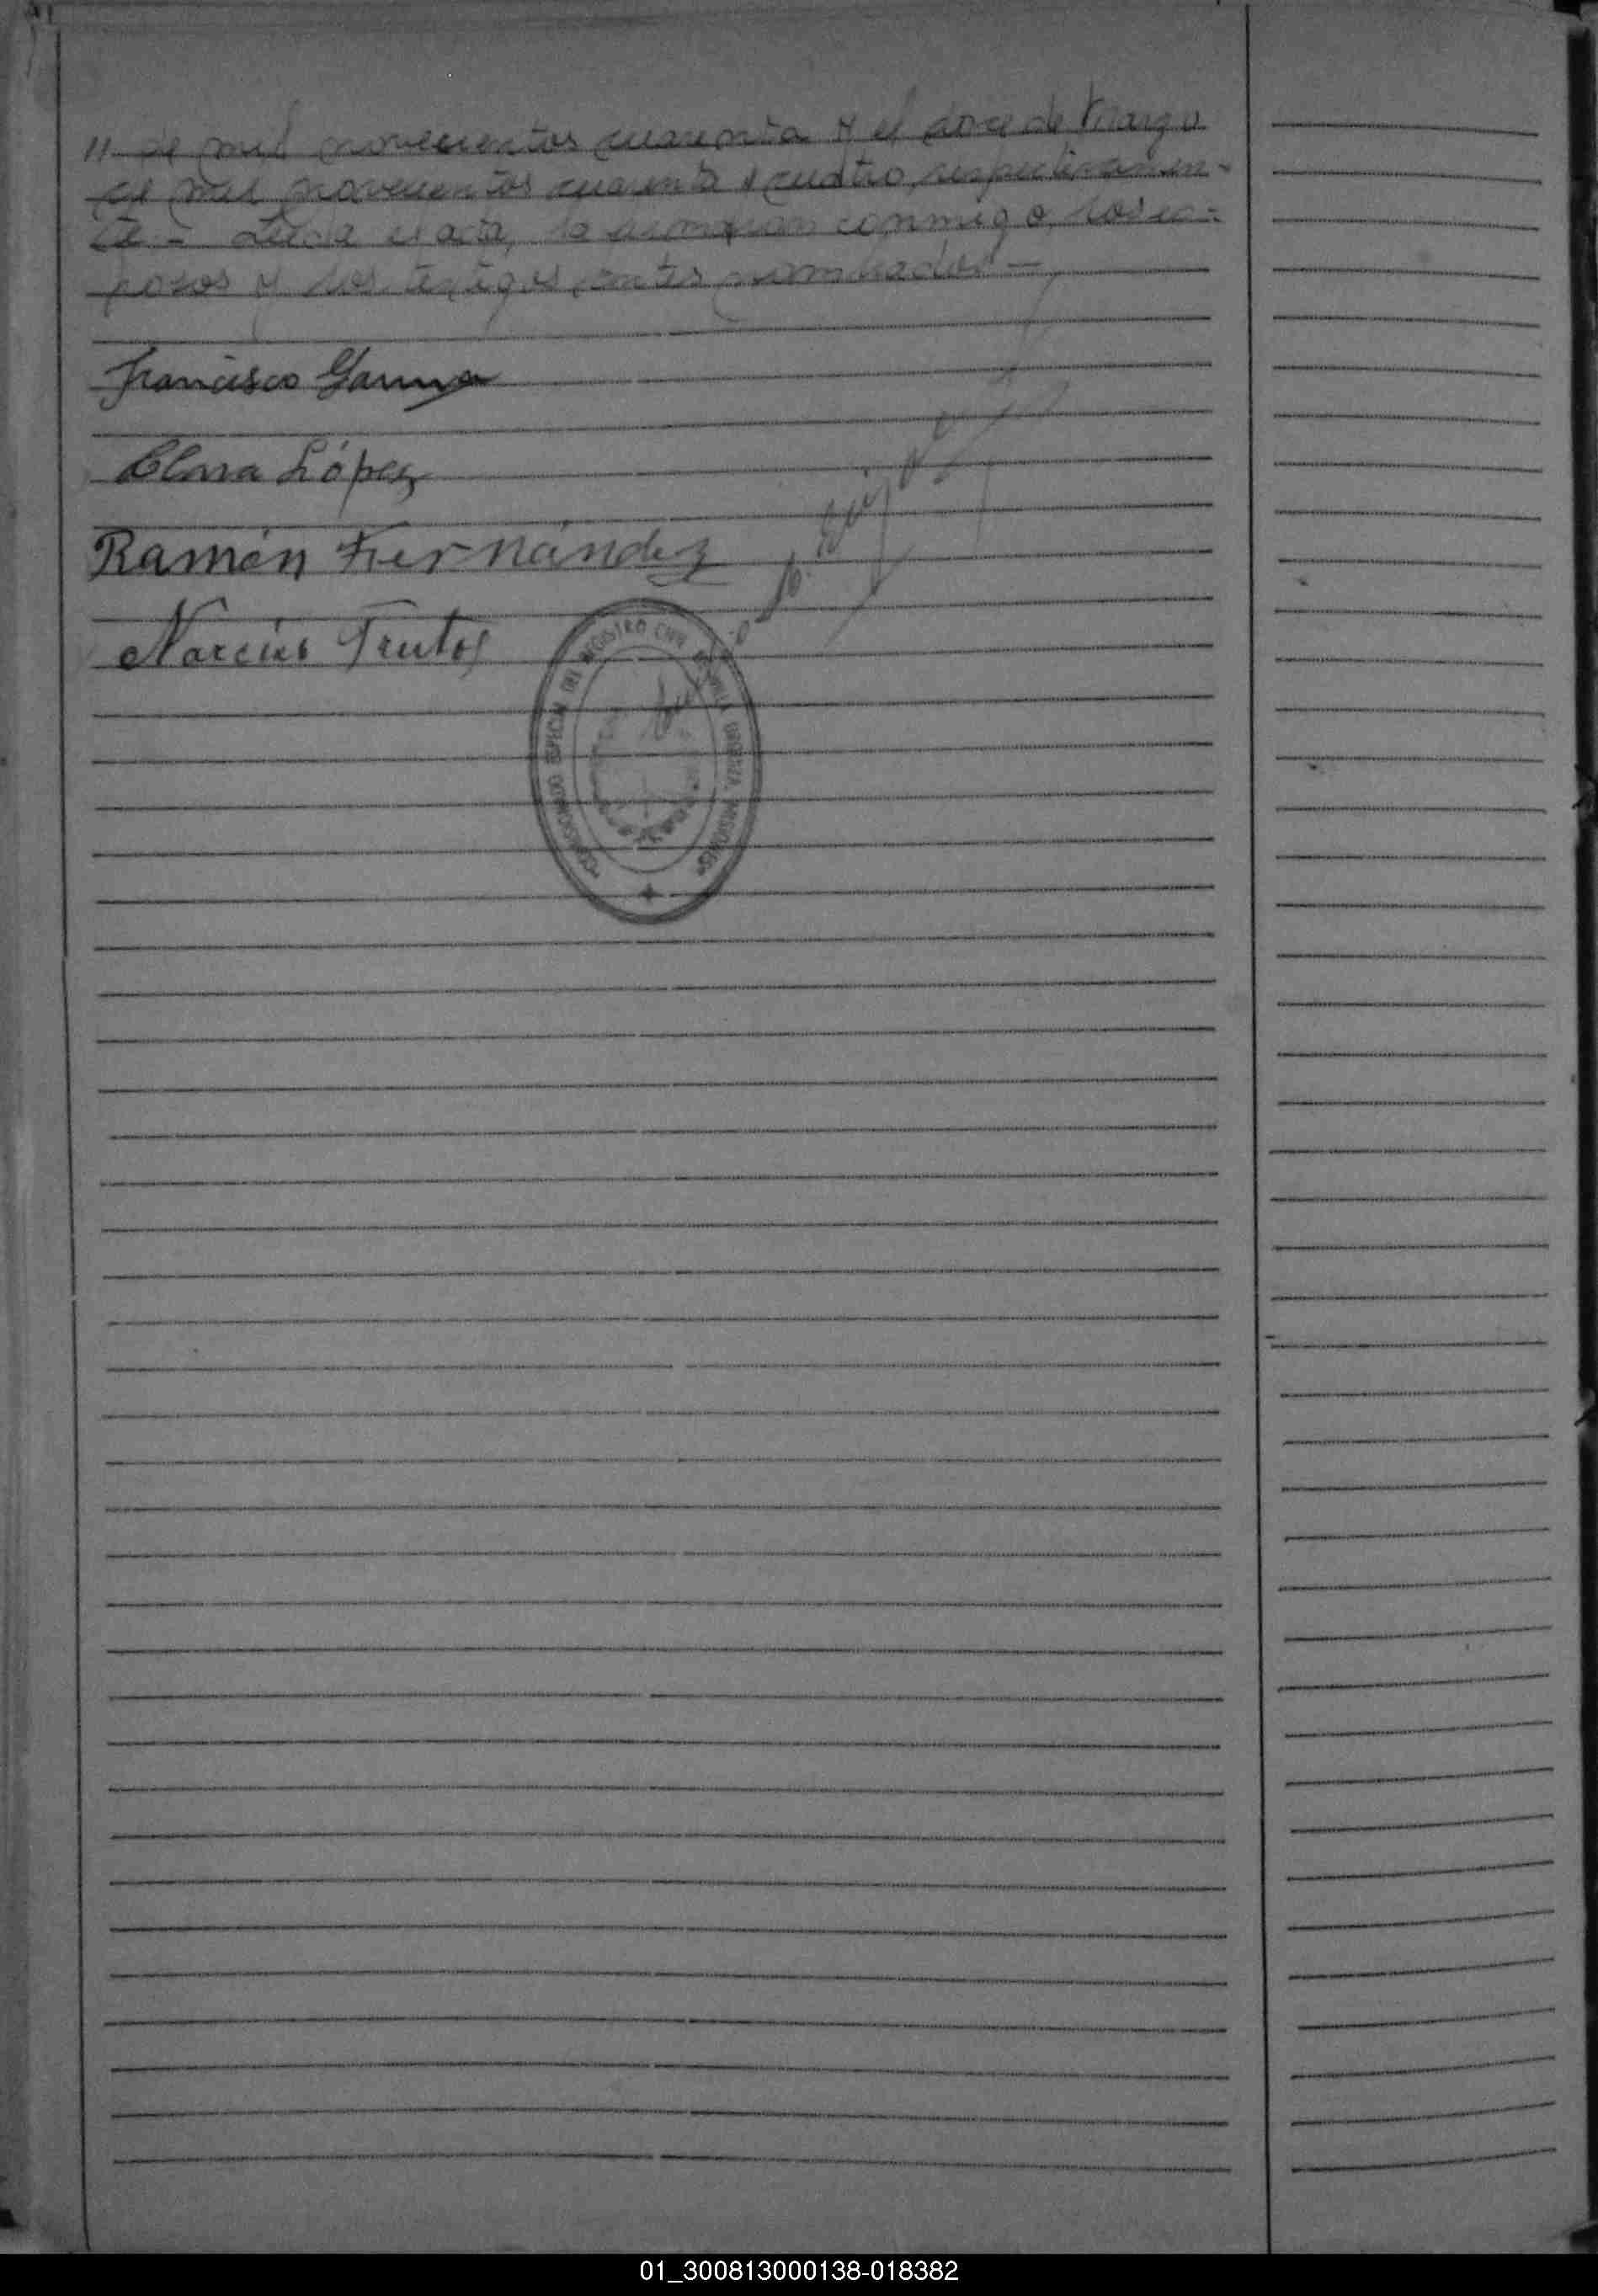 // de mil novecientos cuarenta y el doce de Marzo
de mil novecientos cuarenta y cuatro, respectivamen-
te - Leída el acta, la firmaron conmigo, los es-
posos y los testigos antes nombrados -
Francisco
Clara López
Ramón Fernández
Narciso Frutos
COMISIONADO ESPECIAL DEL REGISTRO CIVIL VILLA URQUIZA MISIONES
01_300813000138-018382